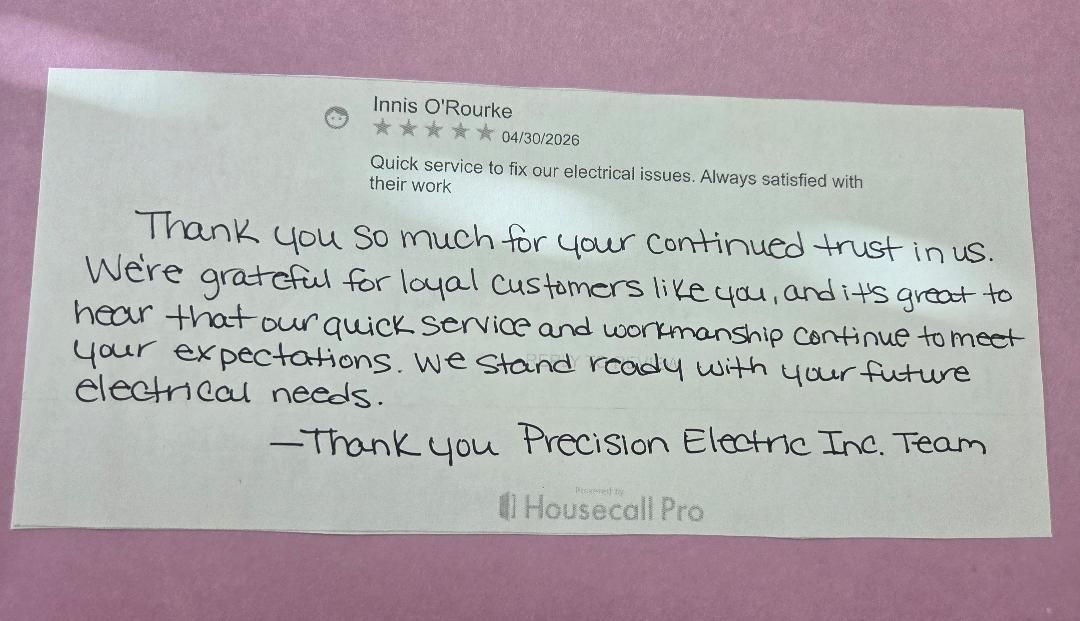 Innis O'Rourke
★★★★★ 04/30/2026
Quick service to fix our electrical issues. Always satisfied with
their work
Thank you so much for your continued trust in us.
We're grateful for loyal customers like you, and it's great to
hear that our quick service and workmanship continue to meet
your expectations. We stand ready with your future
electrical needs.
—Thank you Precision Electric Inc. Team
Powered by
Housecall Pro